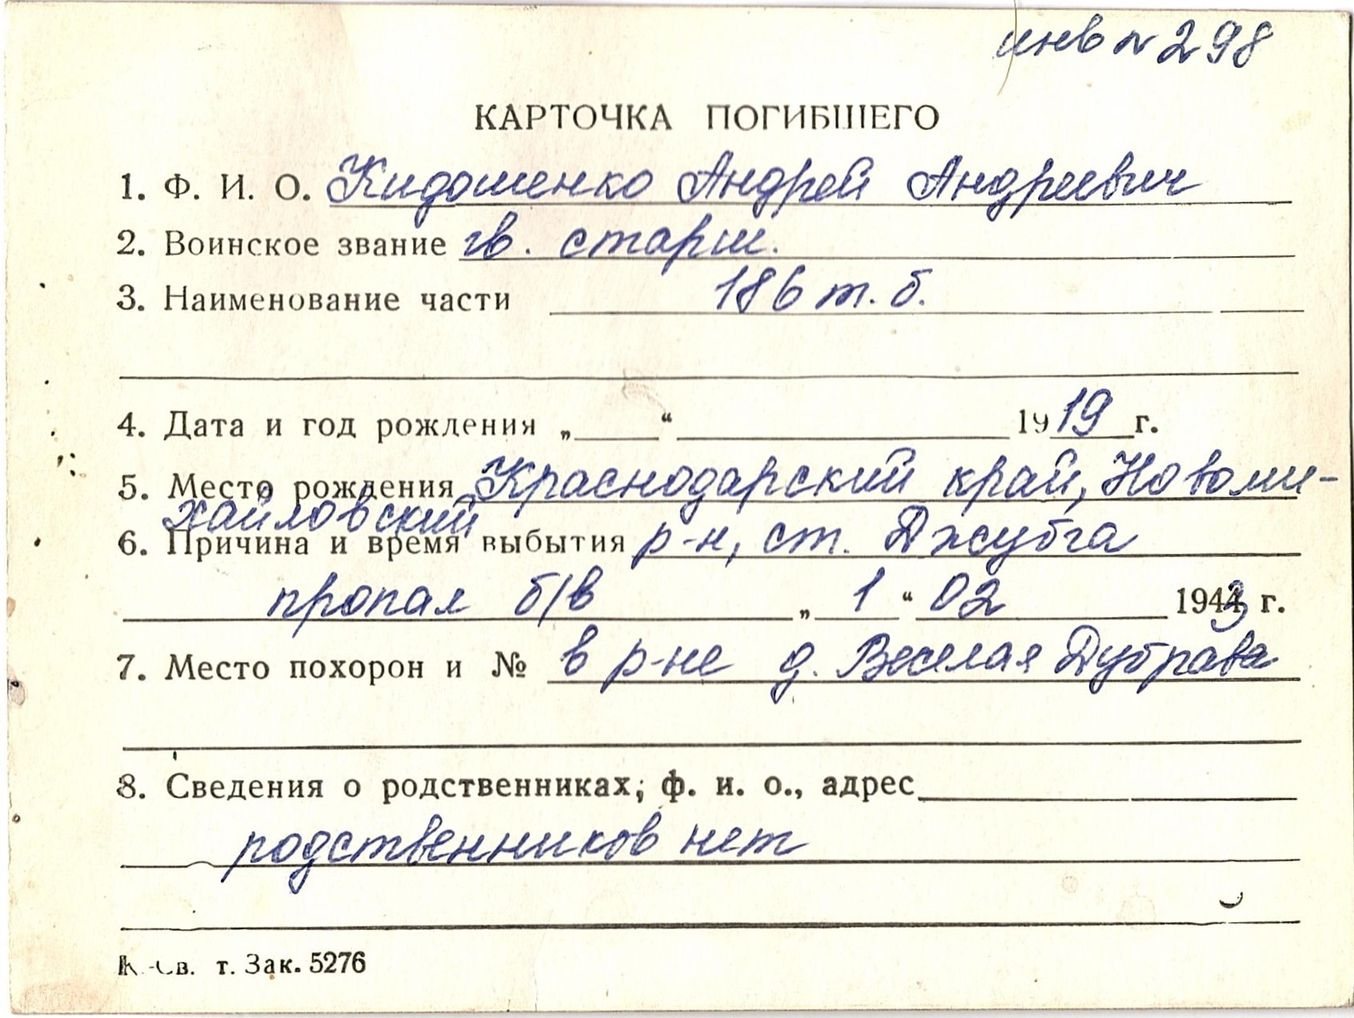 инв № 298
КАРТОЧКА ПОГИБШЕГО
1. Ф. И. О. Кидоменко Андрей Андреевич
2. Воинское звание гв. старш.
3. Наименование части 186 т. б.
4. Дата и год рождения „ “ 1919 г.
5. Место рождения Краснодарский край, Новоми-
хайловский
6. Причина и время выбытия р-н, ст. Джубга
пропал б/в „ 1 “ 02 1943 г.
7. Место похорон и № в р-не д. Веселая Дубрава
8. Сведения о родственниках; ф. и. о., адрес
родственников нет
т. Зак. 5276